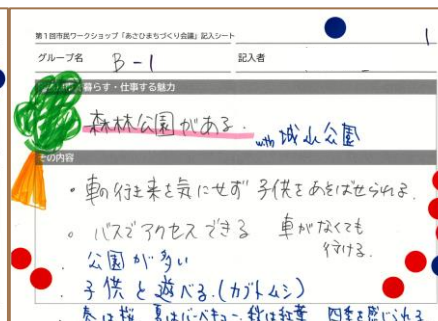 第1回市民ワークショップ「あさひまちづくり会議」記入シート
1
グループ名 B-1 記入者
暮らす・仕事する魅力
森林公園がある。 with 城山公園
その内容
・車の行き来を気にせず 子供をあそばせられる。
。バスでアクセスできる 車がなくても
行ける。
・公園が多い
・子供と遊べる。(カブトムシ)
・春は桜 夏はバーベキュー、秋は紅葉 四季を感じられる